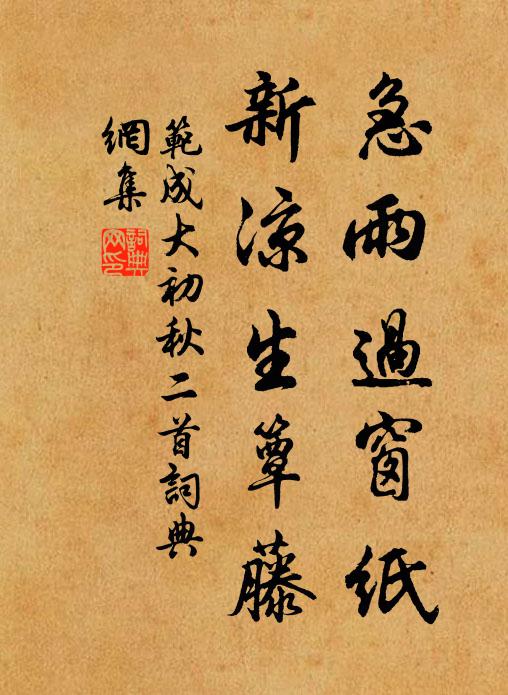 急雨過窗紙
新涼生簟藤
範成大初秋二首詞典
網集
詞典網印